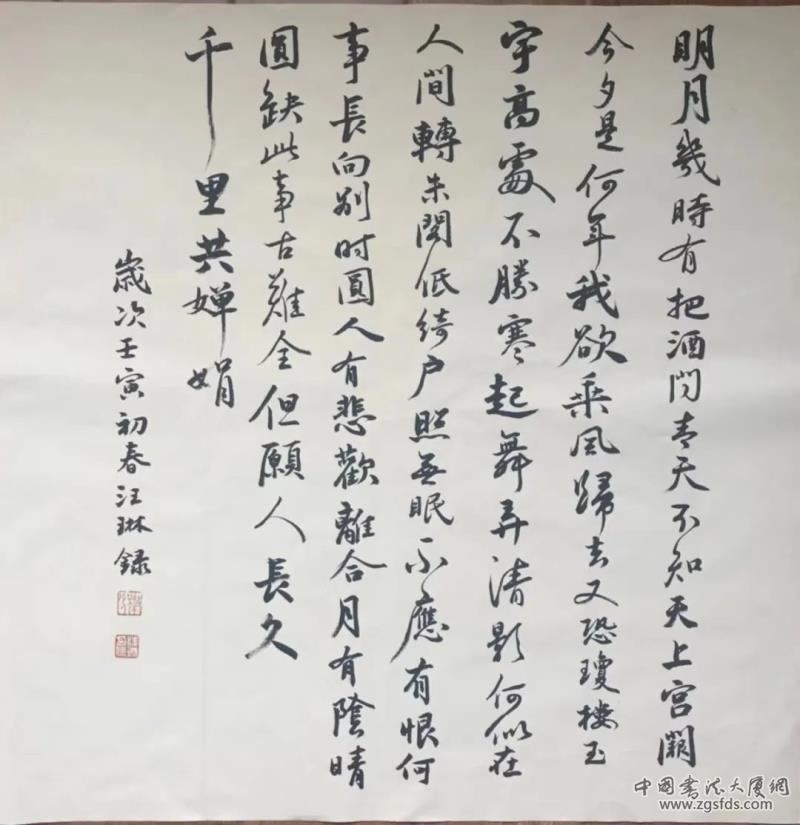 明月幾時有把酒問青天不知天上宫闕
今夕是何年我欲乘風歸去又恐瓊樓玉
宇高處不勝寒起舞弄清影何似在
人間轉朱閣低綺户照無眠不應有恨何
事長向别时圓人有悲歡離合月有陰晴
圓缺此事古難全但願人長久
千里共嬋娟
歲次壬寅初春汪琳録
中國書法大厦網
www.zgsfds.com